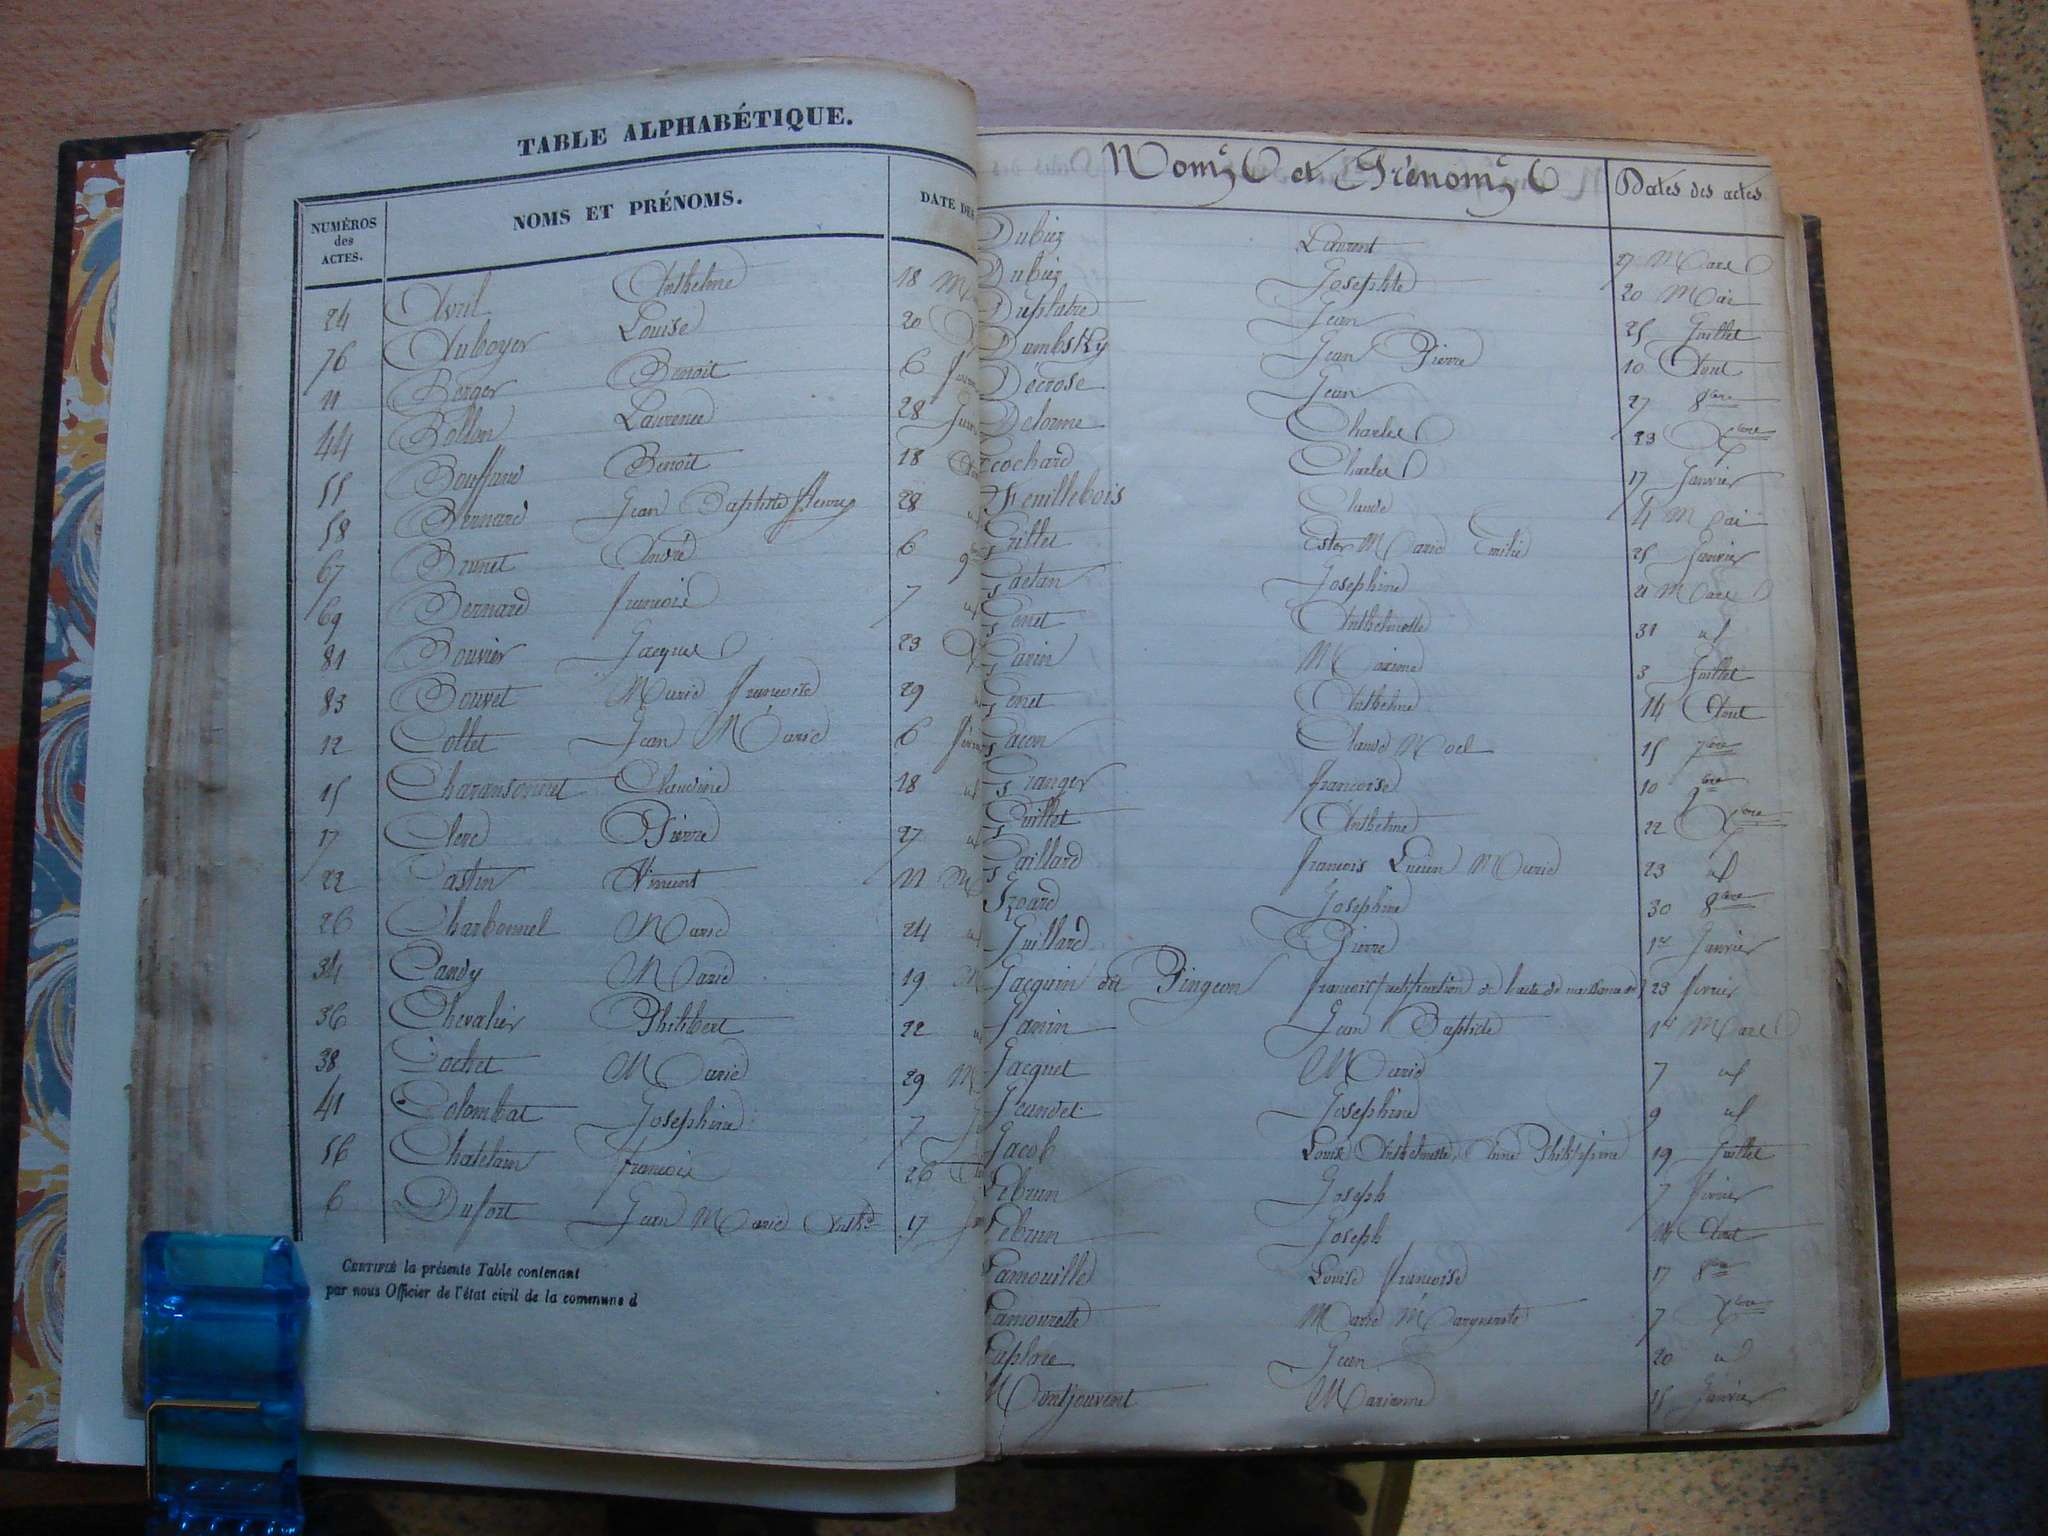 TABLE ALPHABÉTIQUE.
NUMÉROS des ACTES. NOMS ET PRÉNOMS. DATE DES
24 Avril Anthelme 18 M
76 Auboyer Louise 20
11 Berger Benoit 6 fév
44 Bollon Laurence 28 Juin
55 Bouffard Benoit 18
58 Bernard Jean Baptiste fleury 28
67 Brunet André 6 9bre
69 Bernard francois 7 id
81 Bouvier Jacques 23
83 Bouvet Marie francoise 29
12 Collet Jean Marie 6 févr
15 Charansonnet Claudine 18 id
17 Clerc Pierre 27 id
22 Castin Vincent 11 M
26 Charbonnel Marie 24 id
34 Candy Marie 19 M
36 Chevalier Philibert 22 id
38 Cochet Marie 29 M
41 Colombat Josephine 7
56 Chatelain francois 26
6 Dufort Jean Marie Anthe 17 Jan
CERTIFIÉ la présente Table contenant
par nous Officier de l'état civil de la commune d
Noms et Prénoms Dates des actes
Dubiez Laurent 27 Mars
Dubiez Josephte 20 Mai
Duplatre Jean 25 Juillet
DumbsKy Jean Pierre 10 Aout
Décrose Jean 27 8bre
Delorme Charles 23 Xbre
Ecochard Charles 17 Janvier
Feuillebois Claude 4 Mai
Grillet Ester Marie Emilie 25 Janvier
Gaetan Josephine 21 Mars
Genet Anthelmette 31 id
Garin Marianne 3 Juillet
Genet Anthelme 14 Aout
Gacon Claude Noel 15 7bre
Granger francoise 10 9bre
Guillet Anthelme 22 Xbre
Gaillard francois Lucien Marie 23 id
Izoard Josephine 30 8bre
Juillard Pierre 1er Janvier
Jacquin dit Pingeon francois (rectification de l'acte de naissance) 23 fevrier
Janin Jean Baptiste 1er Mars
Jacquet Marie 7 id
Jeandet Josephine 9 id
Jacob Louise Anthelmette, Anne Philippine 19 Juillet
Lebrun Joseph 7 fevrier
Lebrun Joseph 14 Aout
Lamouille Louise francoise 17 8bre
Lamourette Marie Marguerite 7 Xbre
Laplace Jean 20 id
Montjouvent Marianne 15 Janvier